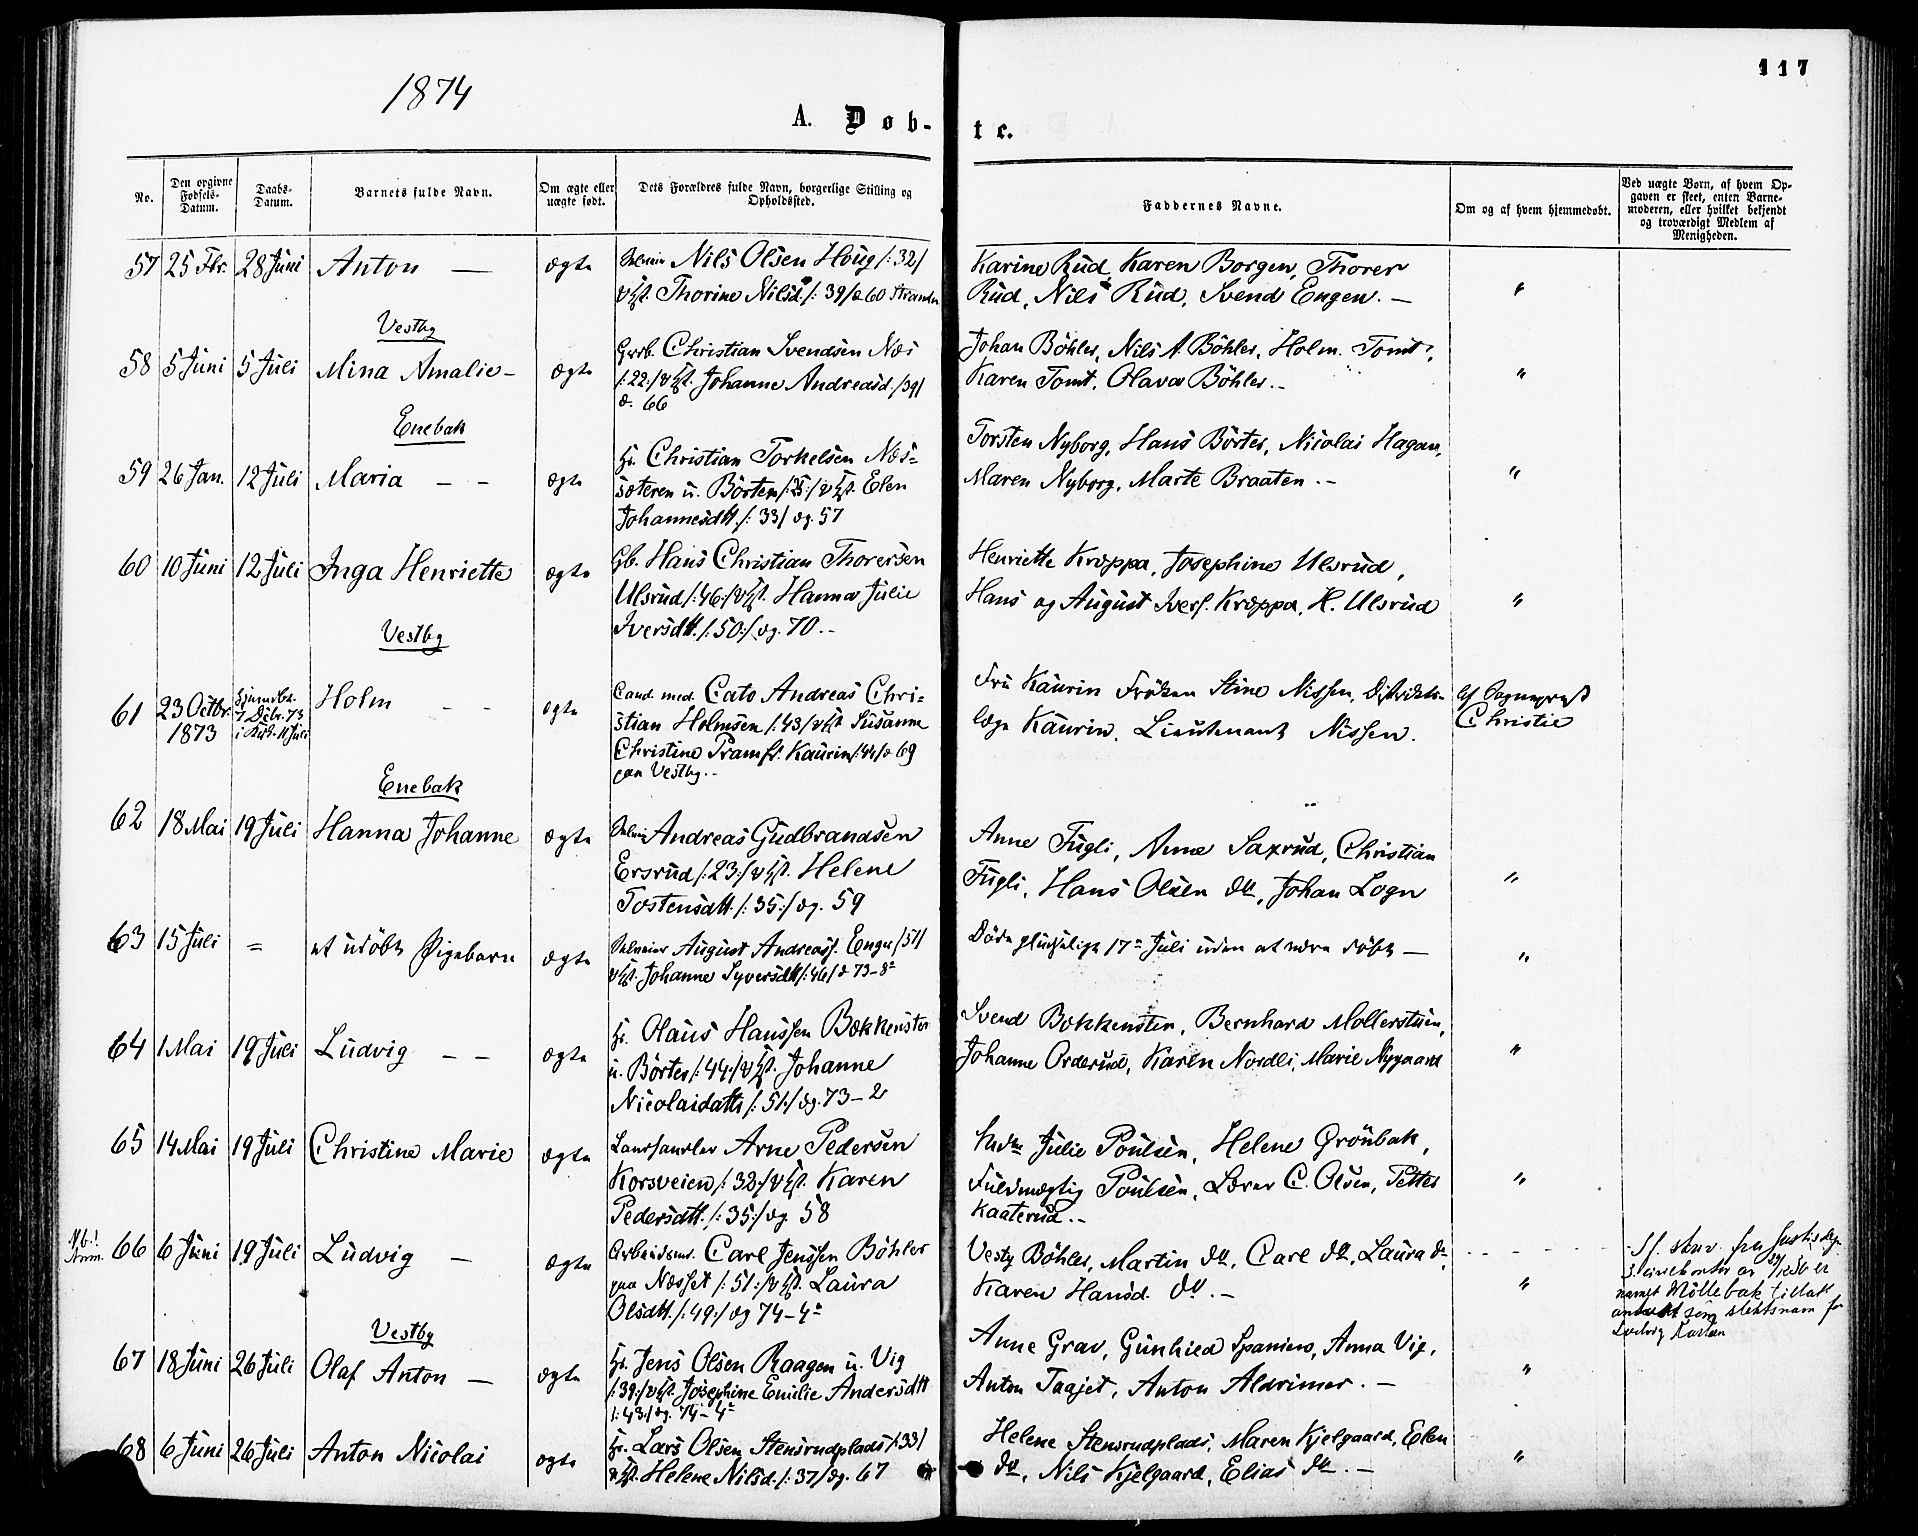 1874
117
A. Døb-
te.
No.
Den opgivne Fødsels-Datum.
Daabs-Datum.
Barnets fulde Navn.
Om ægte eller uægte født.
Dets Forældres fulde Navn, borgerlige Stilling og Opholdssted.
Faddernes Navne.
Om og af hvem hjemmedøbt.
Ved uægte Børn, af hvem Op-
gaven er skeet, enten Barne-
moderen, eller hvilket bekjendt
og troværdigt Medlem af
Menigheden.
57 25 Fbr. 28 Juni Anton — ægte
Selveier Nils Olsen Houg /:32/
Thorine Nilsd. /:39/ 60
Karine Rud, Karen Borgen, Thorer
Rud, Nils Rud, Svend Engen. —
"
Vestby
58 5 Juni 5 Juli Mina Amalie - ægte
Christian Svendsen Næs
/:22:/ Johanne Andreasd. /39/
66
Johan Böhler, Nils A. Böhler, Holm. Tomt,
Karen Tomt, Olava Böhler. -
"
Enebak
59 26 Jan. 12 Juli Maria - - ægte
Christian Torkelsen Næs=
sæteren u. Börten /:35:/ Elen
Johannesdtt. /:33/ og. 57
Torsten Nyborg, Hans Börter, Nicolai Hagan,
Maren Nyborg, Marte Braaten. -
"
60 10 Juni 12 Juli Inga Henriette ægte
Gb. Hans Christian Thorersen
Ulsrud /:46:/ Hanna Julie
Iversdtt. /:50:/ og. 70. -
Henriette Kroppa, Josephine Ulsrud,
Hans og August Ivers. Kroppa, H. Ulsrud
"
Vestby
61 23 Octbr. 1873 Holm - - ægte
7 Dcbr. 73
11 Juli
Cand. med. Cato Andreas Chri=
stian Holmsen /:43/ Susanne
Christine Pram f. Kaurin /:44/ 69
paa Vestby. -
Fru Kaurin Fröken Stine Nissen, Distrikts-
læge Kaurin. Lieutenant Nissen.
Af Sognepræst
Christie
Enebak
62 18 Mai 19 Juli Hanna Johanne ægte
Andreas Gudbrandsen
Ersrud /:23:/ Helene
Tostensdtt. /:35:/ og. 59
Anne Fugli, Anne Saxrud, Christian
Fugli, Hans Olsen do, Johan Logn
"
63 15 Juli = et udöbt Pigebarn ægte
Selveier August Andreass. Enger /51/
Johanne Syversdtt /:46/ 73-8
Döde pludselige 17de Juli uden at være döbt —
"
64 1 Mai 19 Juli Ludvig - - ægte
Olaus Hanssen Bækkensten
u. Börter /:44:/ Johanne
Nicolaidatte /:51:/ og. 73-2
Svend Bækkensten, Bernhard Mollerstuen,
Johanne Orderud, Karen Nordli, Marie Nygaard
"
65 14 Mai 19 Juli Christine Marie ægte
Landhandler Arne Pedersen
Korsveien /:32:/ Karen
Pedersdtt. /:35:/ og. 58
Julie Poulsen, Helene Grönbak,
Fuldmægtig Poulsen, Lærer C. Olsen, Petter
Kaaterud. -
"
66 6 Juni 19 Juli Ludvig — ægte
Arbeidsm. Carl Jenssen Böhler
paa Næsset /:51:/ Laura
Olsdtt. /:49:/ og 74-4
Vesty Böhler, Martin do, Carl do, Laura do,
Karen Hansd. do. -
"
Vestby
67 18 Juni 26 Juli Olaf Anton — ægte
Jens Olsen Raagen u. Vig
/:39:/ Josephine Emilie Andersdtt
/:43:/ og. 74-4
Anne Grav, Gunhild Spaniens, Anna Vig,
Anton Taajet, Anton Aldrimer. —
"
68 6 Juni 26 Juli Anton Nicolai ægte
Lars Olsen Stensrudplads /:33/
Helene Nilsd. /:37/ og. 67
Helene Stensrudplads, Maren Kjelgaard, Elen
do, Nils Kjelgaard, Elias do. —
"